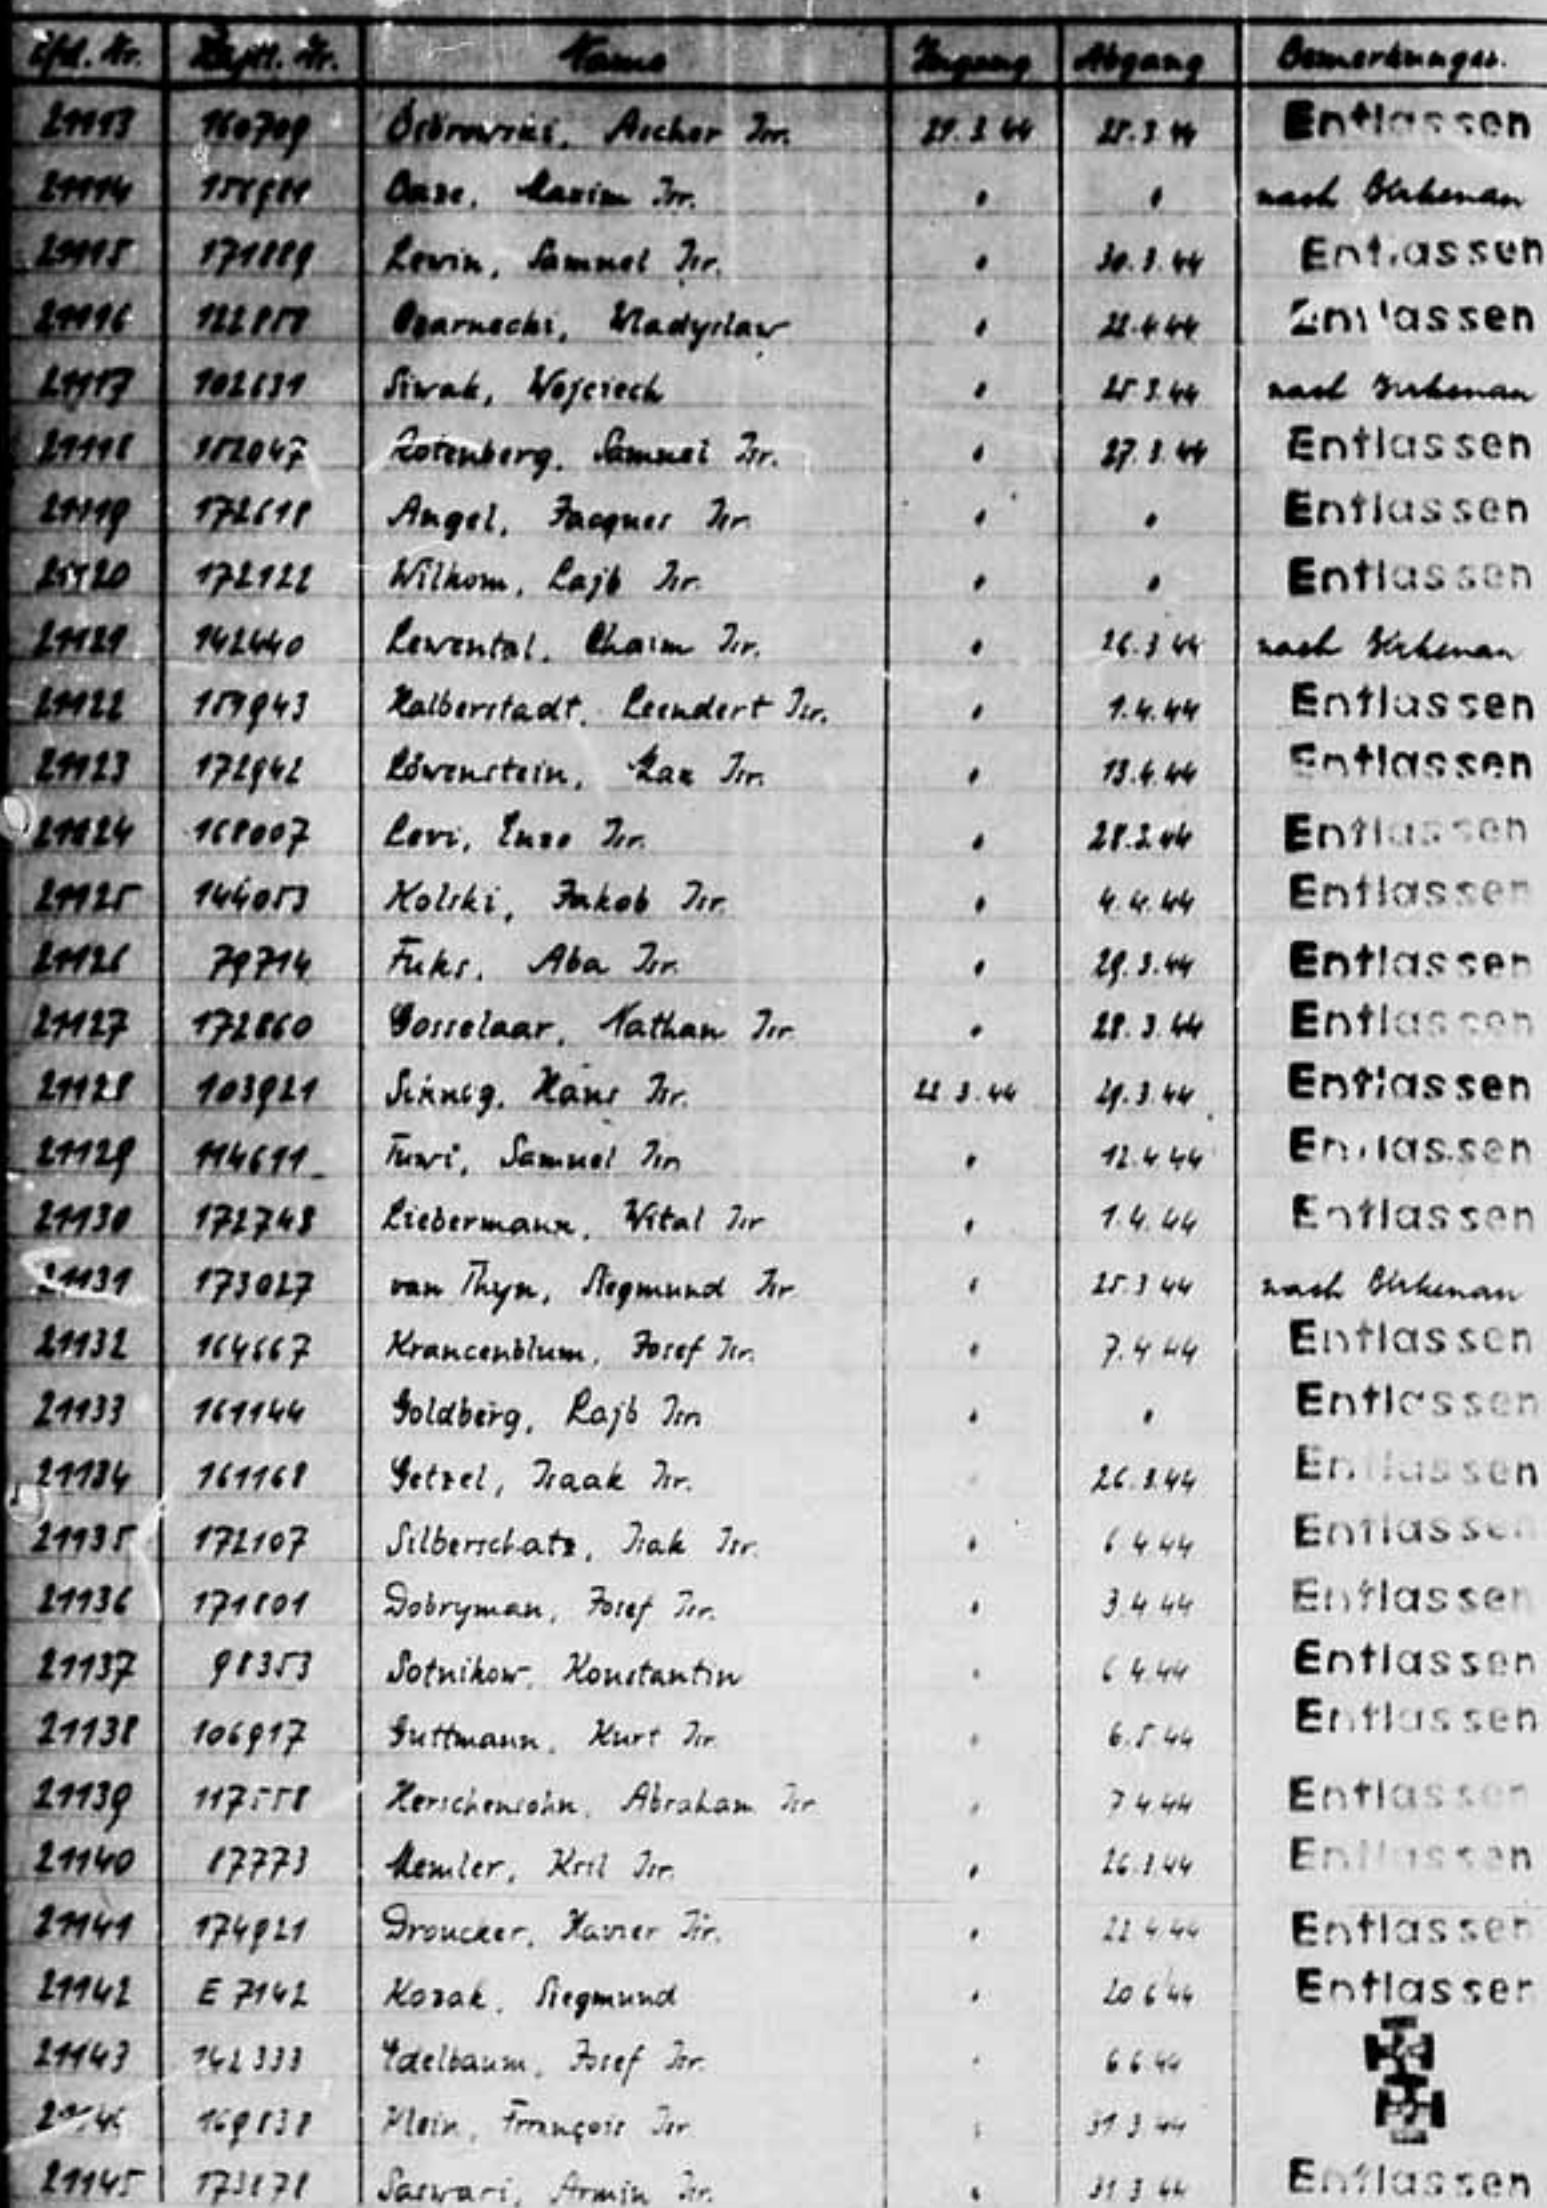 Lfd. Nr. Häftl. Nr. Name Zugang Abgang Bemerkungen.
21113 160709 Ostrowski, Ascher Isr. 25.3.44 Entlassen
21114 Maxim Isr. " " nach Birkenau
21115 171889 Lewin, Samuel Isr. " 30.3.44 Entlassen
21116 Czarnecki, Wladyslaw " 22.4.44 Entlassen
21117 102631 Siwak, Wojciech " 25.3.44 nach Birkenau
21118 152047 Rotenberg, Samuel Isr. " 27.3.44 Entlassen
21119 172618 Angel, Jacques Isr. " " Entlassen
21120 172122 Wilkom, Lajb Isr. " " Entlassen
21121 142440 Lewental, Chaim Isr. " 26.3.44 nach Birkenau
21122 Halberstadt, Leendert Isr. " 1.4.44 Entlassen
21123 172942 Löwenstein, Max Isr. " 13.4.44 Entlassen
21124 168007 Levi, Enzo Isr. " Entlassen
21125 144053 Kolski, Jakob Isr. " 4.4.44 Entlassen
21126 79714 Fuks, Aba Isr. " 29.3.44 Entlassen
21127 172860 Gosselaar, Nathan Isr. " 28.3.44 Entlassen
21128 103921 Hans Isr. 22.3.44 29.3.44 Entlassen
21129 114611 Samuel Isr. " 12.4.44 Entlassen
21130 172748 Liebermann, Wital Isr. " 1.4.44 Entlassen
21131 173027 van Thyn, Siegmund Isr. " 25.3.44 nach Birkenau
21132 164667 Krancenblum, Josef Isr. " 7.4.44 Entlassen
21133 161144 Goldberg, Lajb Isr. " " Entlassen
21134 161168 Getzel, Isaak Isr. " 26.3.44 Entlassen
21135 172107 Silberschatz, Isak Isr. " 6.4.44 Entlassen
21136 171801 Dobryman, Josef Isr. " 3.4.44 Entlassen
21137 98353 Sotnikow, Konstantin " 6.4.44 Entlassen
21138 106917 Guttmann, Kurt Isr. " 6.5.44 Entlassen
21139 117558 Herschensohn, Abraham Isr. " 7.4.44 Entlassen
21140 87773 Isr. " 26.3.44 Entlassen
21141 174921 Droucker, Isr. " 22.4.44 Entlassen
21142 E 7142 Kozak, Siegmund " 20.6.44 Entlassen
21143 142333 Edelbaum, Josef Isr. " 6.6.44
169838 Klein, François Isr. " 31.3.44
21145 173878 Armin Isr. " 31.3.44 Entlassen